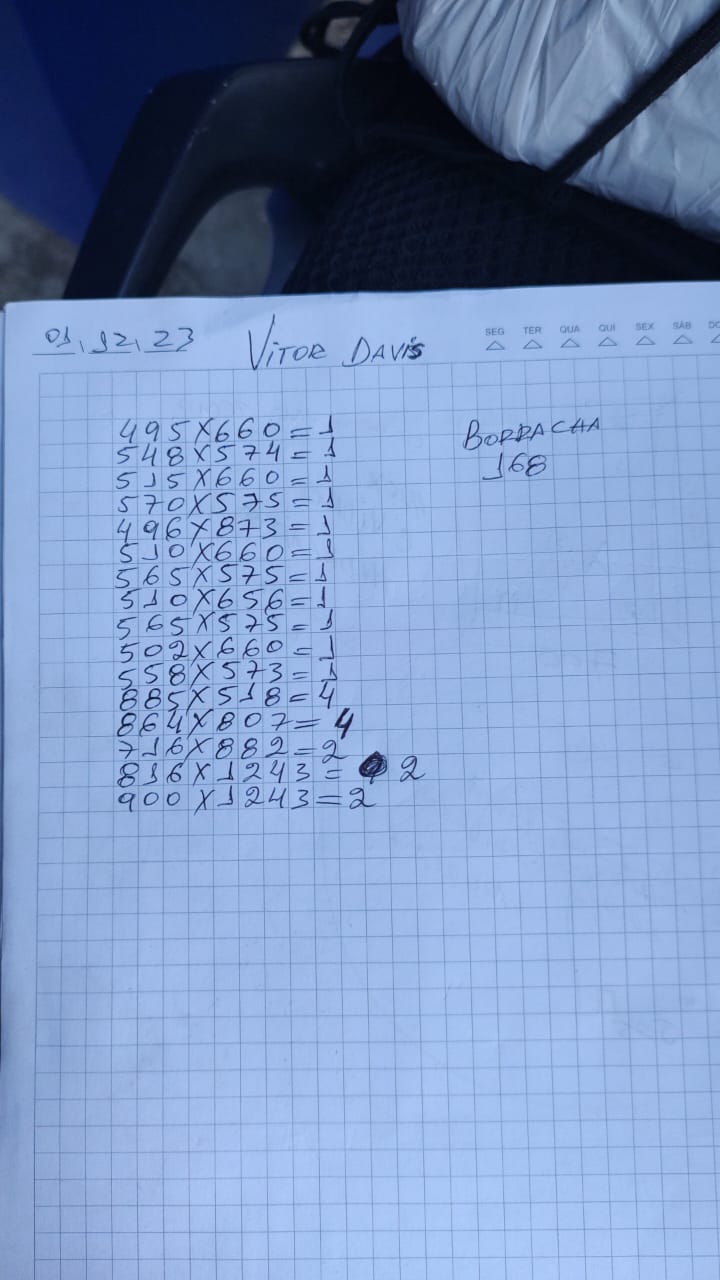 01,12,23 VITOR DAVIS SEG TER QUA QUI SEX SÁB DO
495X660=1 BORRACHA
548X574=1 168
515X660=1
570X575=1
496X873=1
510X660=1
565X575=1
510X656=1
565X575=1
502X660=1
558X573=1
885X518=4
864X807=4
716X882=2
816X1243= 2
900X1243=2